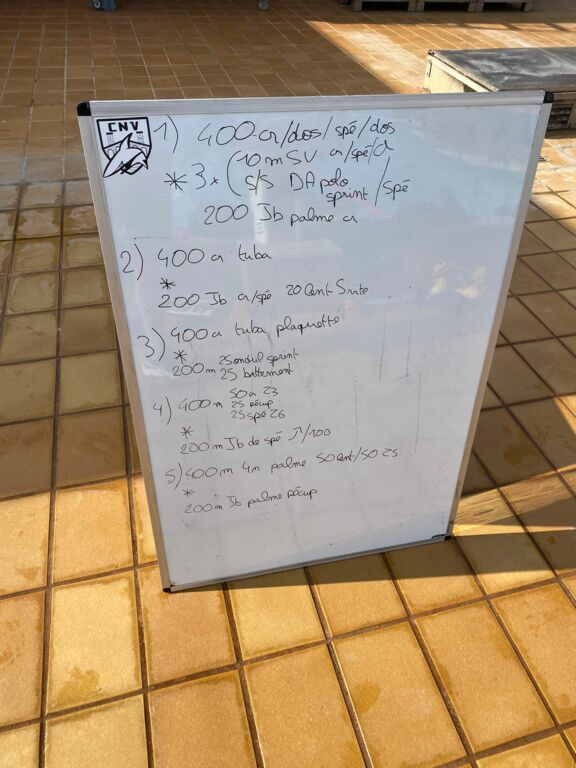 CNV
1) 400 cr/dos/spé/dos
* 3 x ( 10 m SV cr/spé/cr
S/S DA polo
sprint /spé
200 Jb palme cr
2) 400 cr tuba
*
200 Jb cr/spé 20 Cent 5 vite
3) 400 cr tuba plaquette
*
200m 25 ondul sprint
25 battement
4) 400m 50 cr Z3
25 récup
25 spé Z6
*
200m Jb de spé J/100
5) 400m 4n palme 50 Cent/50 Z5
*
200m Jb palme récup